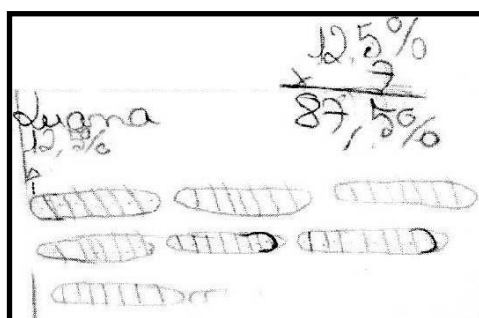 12,5%
x 7
87,5%
Luana
12,5%